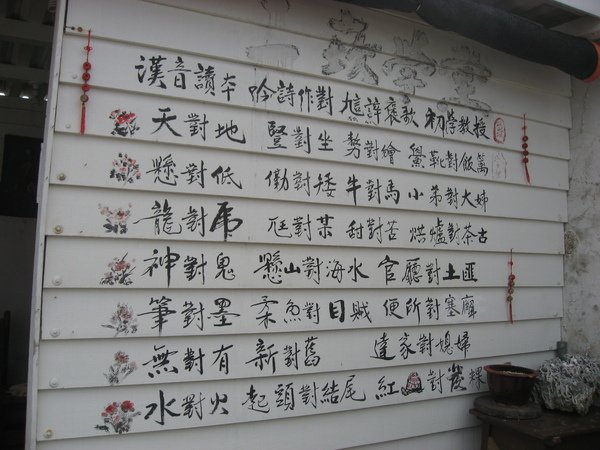 學堂
漢音讀本 吟詩作對 褒歌 初學教授
天對地 豎對坐 勢對繪 對飯
懸對低 對矮 牛對馬 小弟對大姊
龍對虎 尫對某 甜對苦 烘爐對茶古
神對鬼 懸山對海水 官廳對土匪
筆對墨 柔魚對目賊 便所對塞廟
無對有 新對舊 達家對媳婦
水對火 起頭對結尾 紅龜對發粿